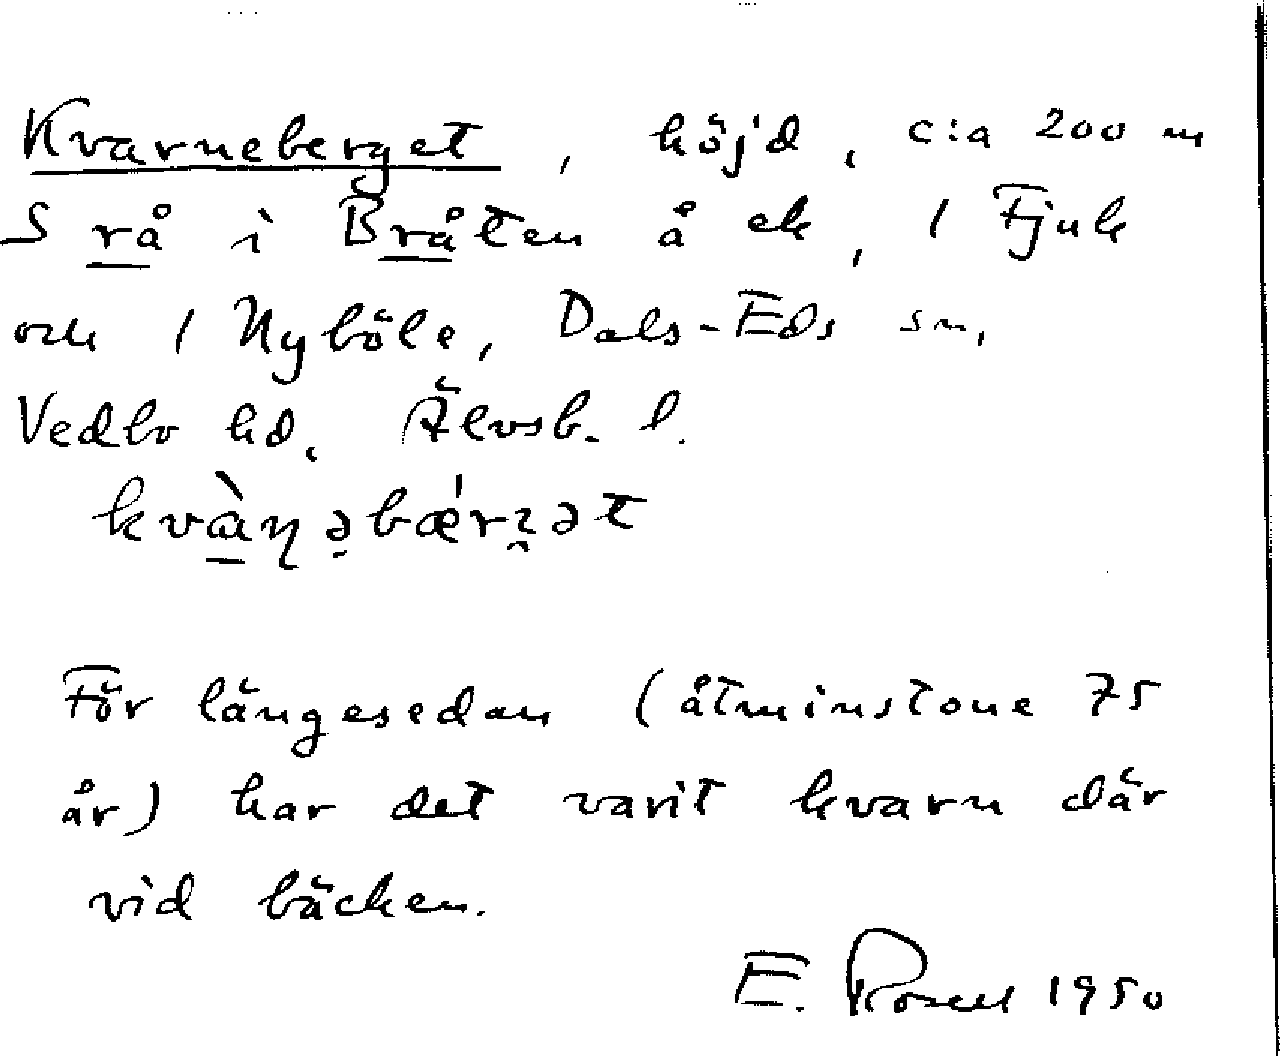 Kvarneberget, höjd, c:a 200 m
S rå i Bråten å ek, 1 Fjuk
och 1 Nyböle, Dals-Eds sn,
Vedbo hd, Älvsb. l.
kvàɳəbǽrʐət
För längesedan (åtminstone 75
år) har det varit kvarn där
vid bäcken.
E. Rosell 1950